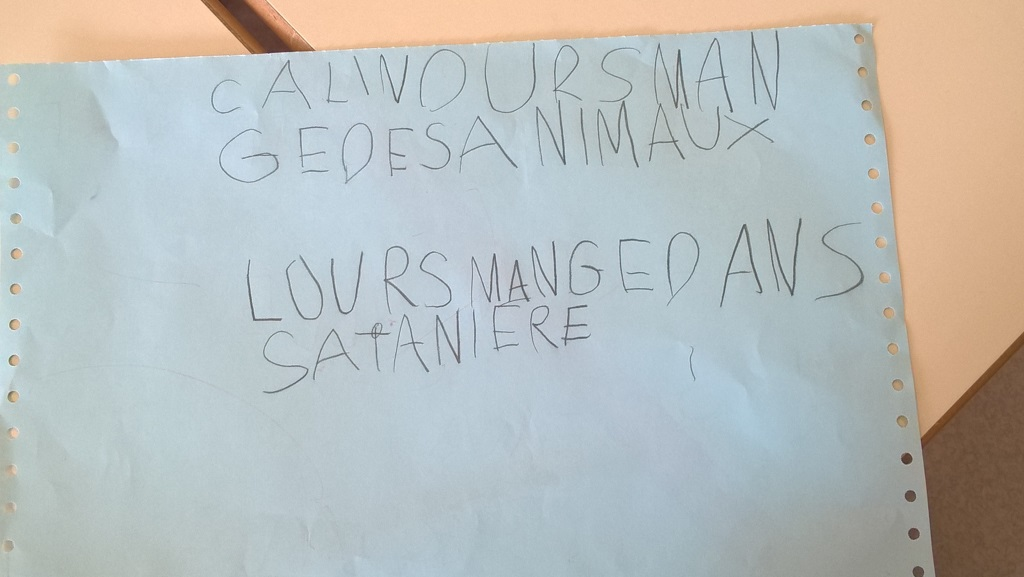 CALINOURSMAN
GEDESANIMAUX
LOURSMANGEDANS
SATANIERE